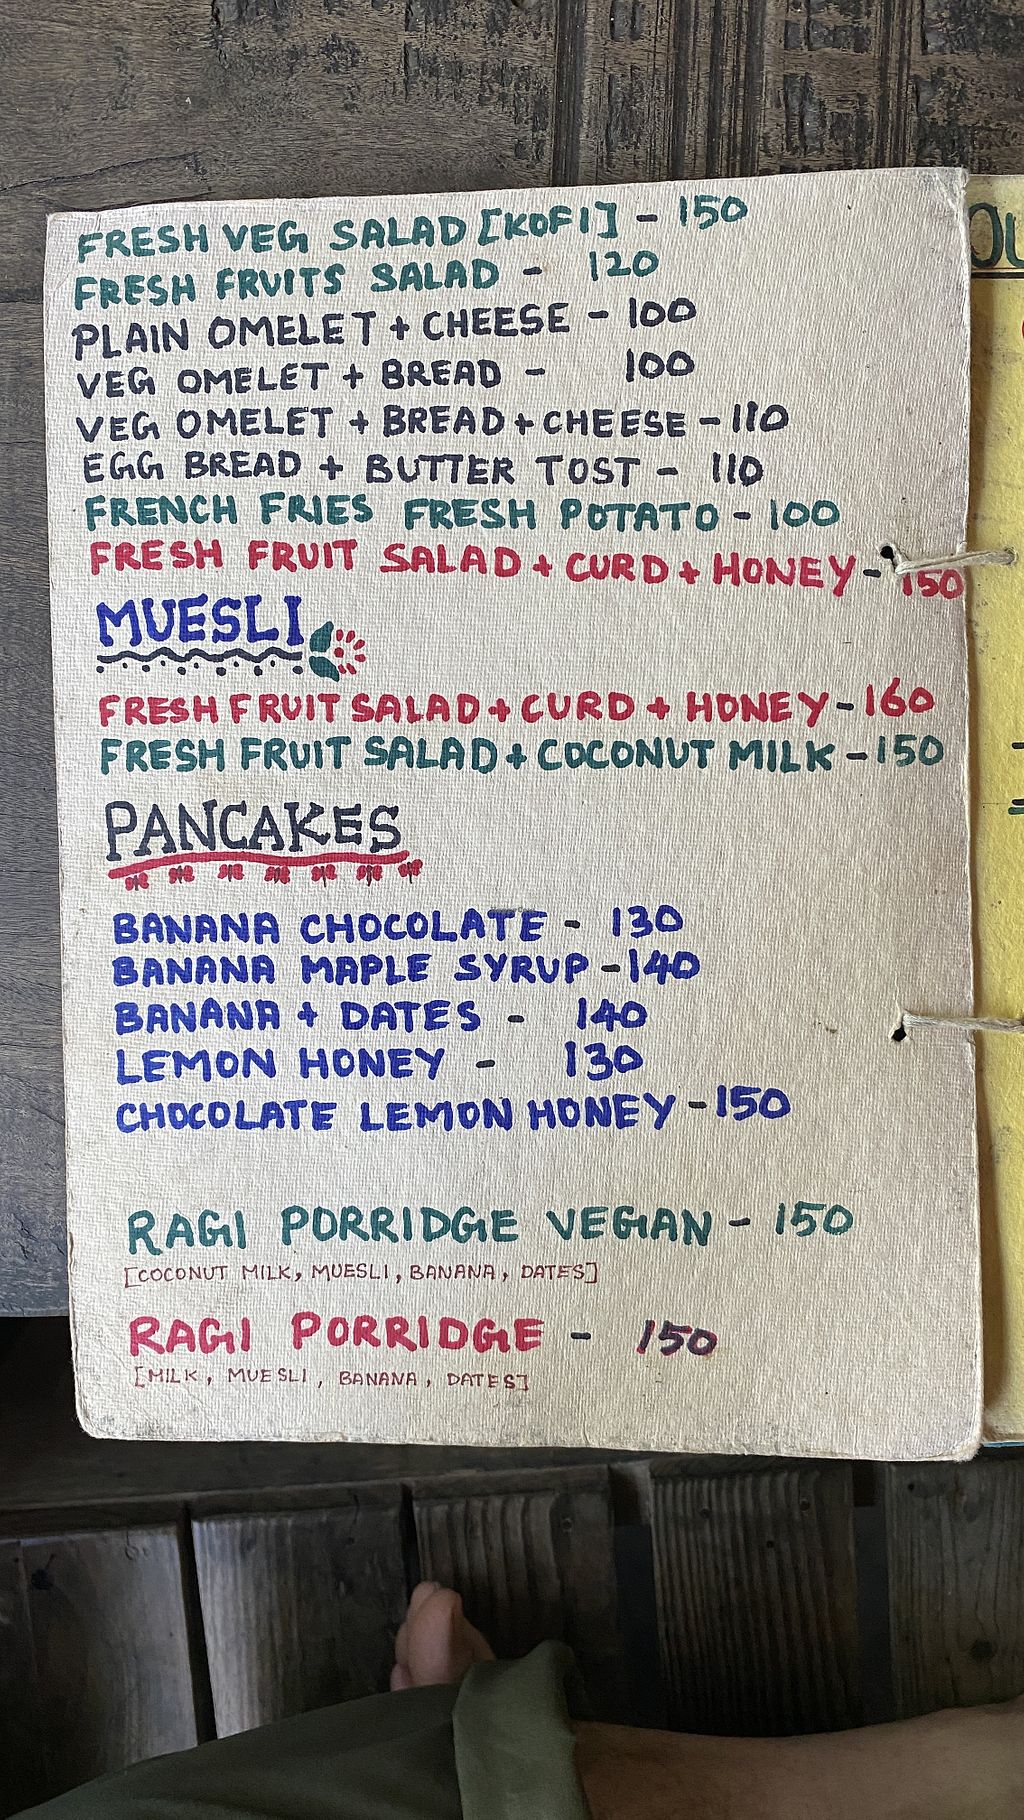 FRESH VEG SALAD [KOFI] - 150
FRESH FRUITS SALAD - 120
PLAIN OMELET + CHEESE - 100
VEG OMELET + BREAD - 100
VEG OMELET + BREAD + CHEESE - 110
EGG BREAD + BUTTER TOST - 110
FRENCH FRIES FRESH POTATO - 100
FRESH FRUIT SALAD + CURD + HONEY - 150
MUESLI
FRESH FRUIT SALAD + CURD + HONEY - 160
FRESH FRUIT SALAD + COCONUT MILK - 150
PANCAKES
BANANA CHOCOLATE - 130
BANANA MAPLE SYRUP - 140
BANANA + DATES - 140
LEMON HONEY - 130
CHOCOLATE LEMON HONEY - 150
RAGI PORRIDGE VEGAN - 150
[COCONUT MILK, MUESLI, BANANA, DATES]
RAGI PORRIDGE - 150
[MILK, MUESLI, BANANA, DATES]